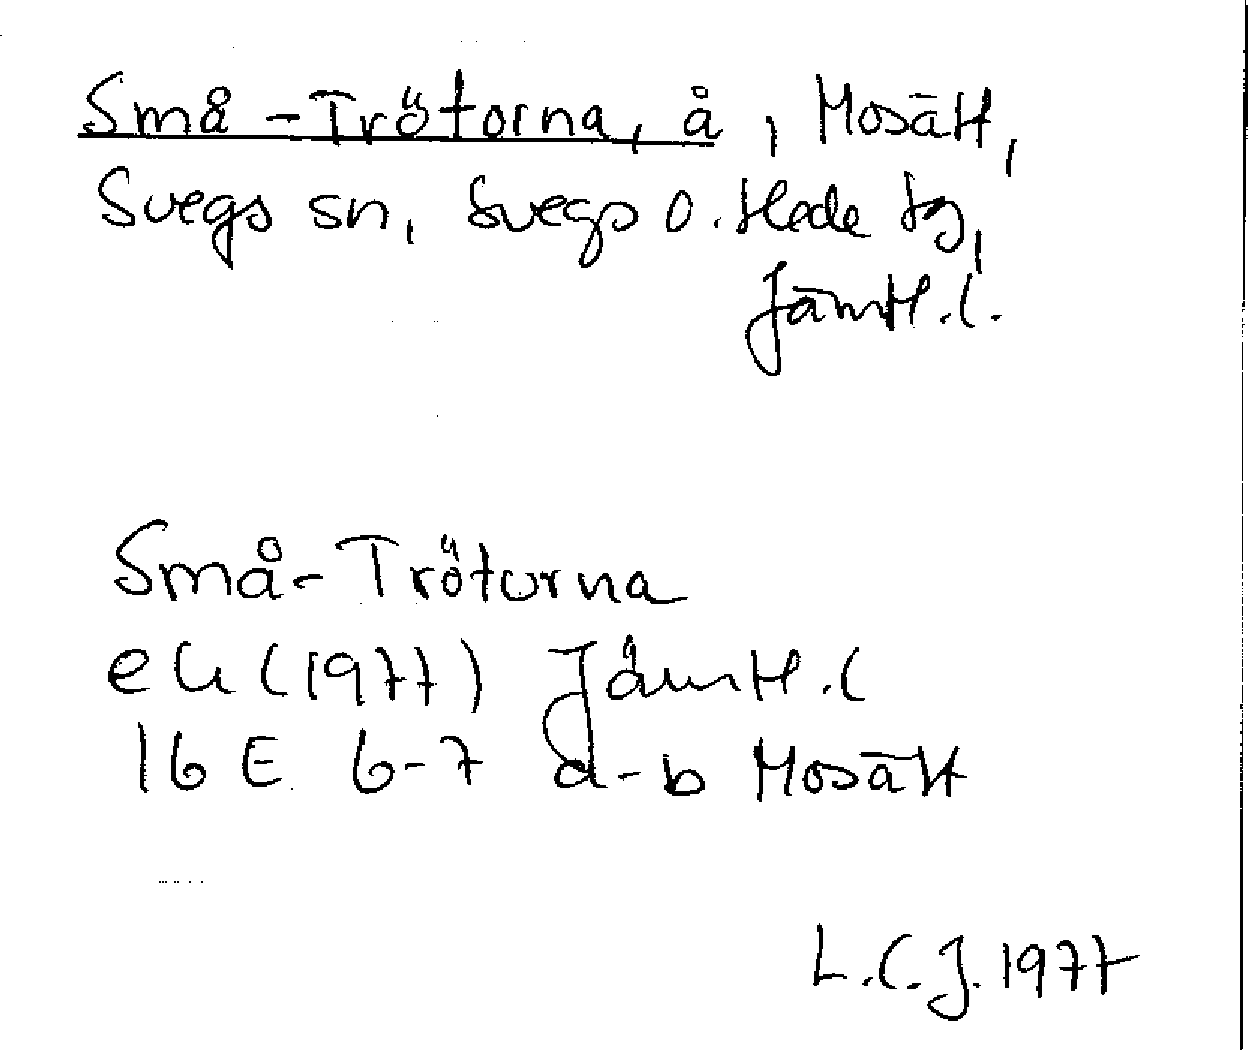 Små-Trötorna, å, Mosätt,
Svegs sn, Svegs o. Hede tg,
Jämtl. l.
Små-Tröturna
ek (1977) Jämtl. l
16 E 6-7 d-b Mosätt
L.C.J. 1977